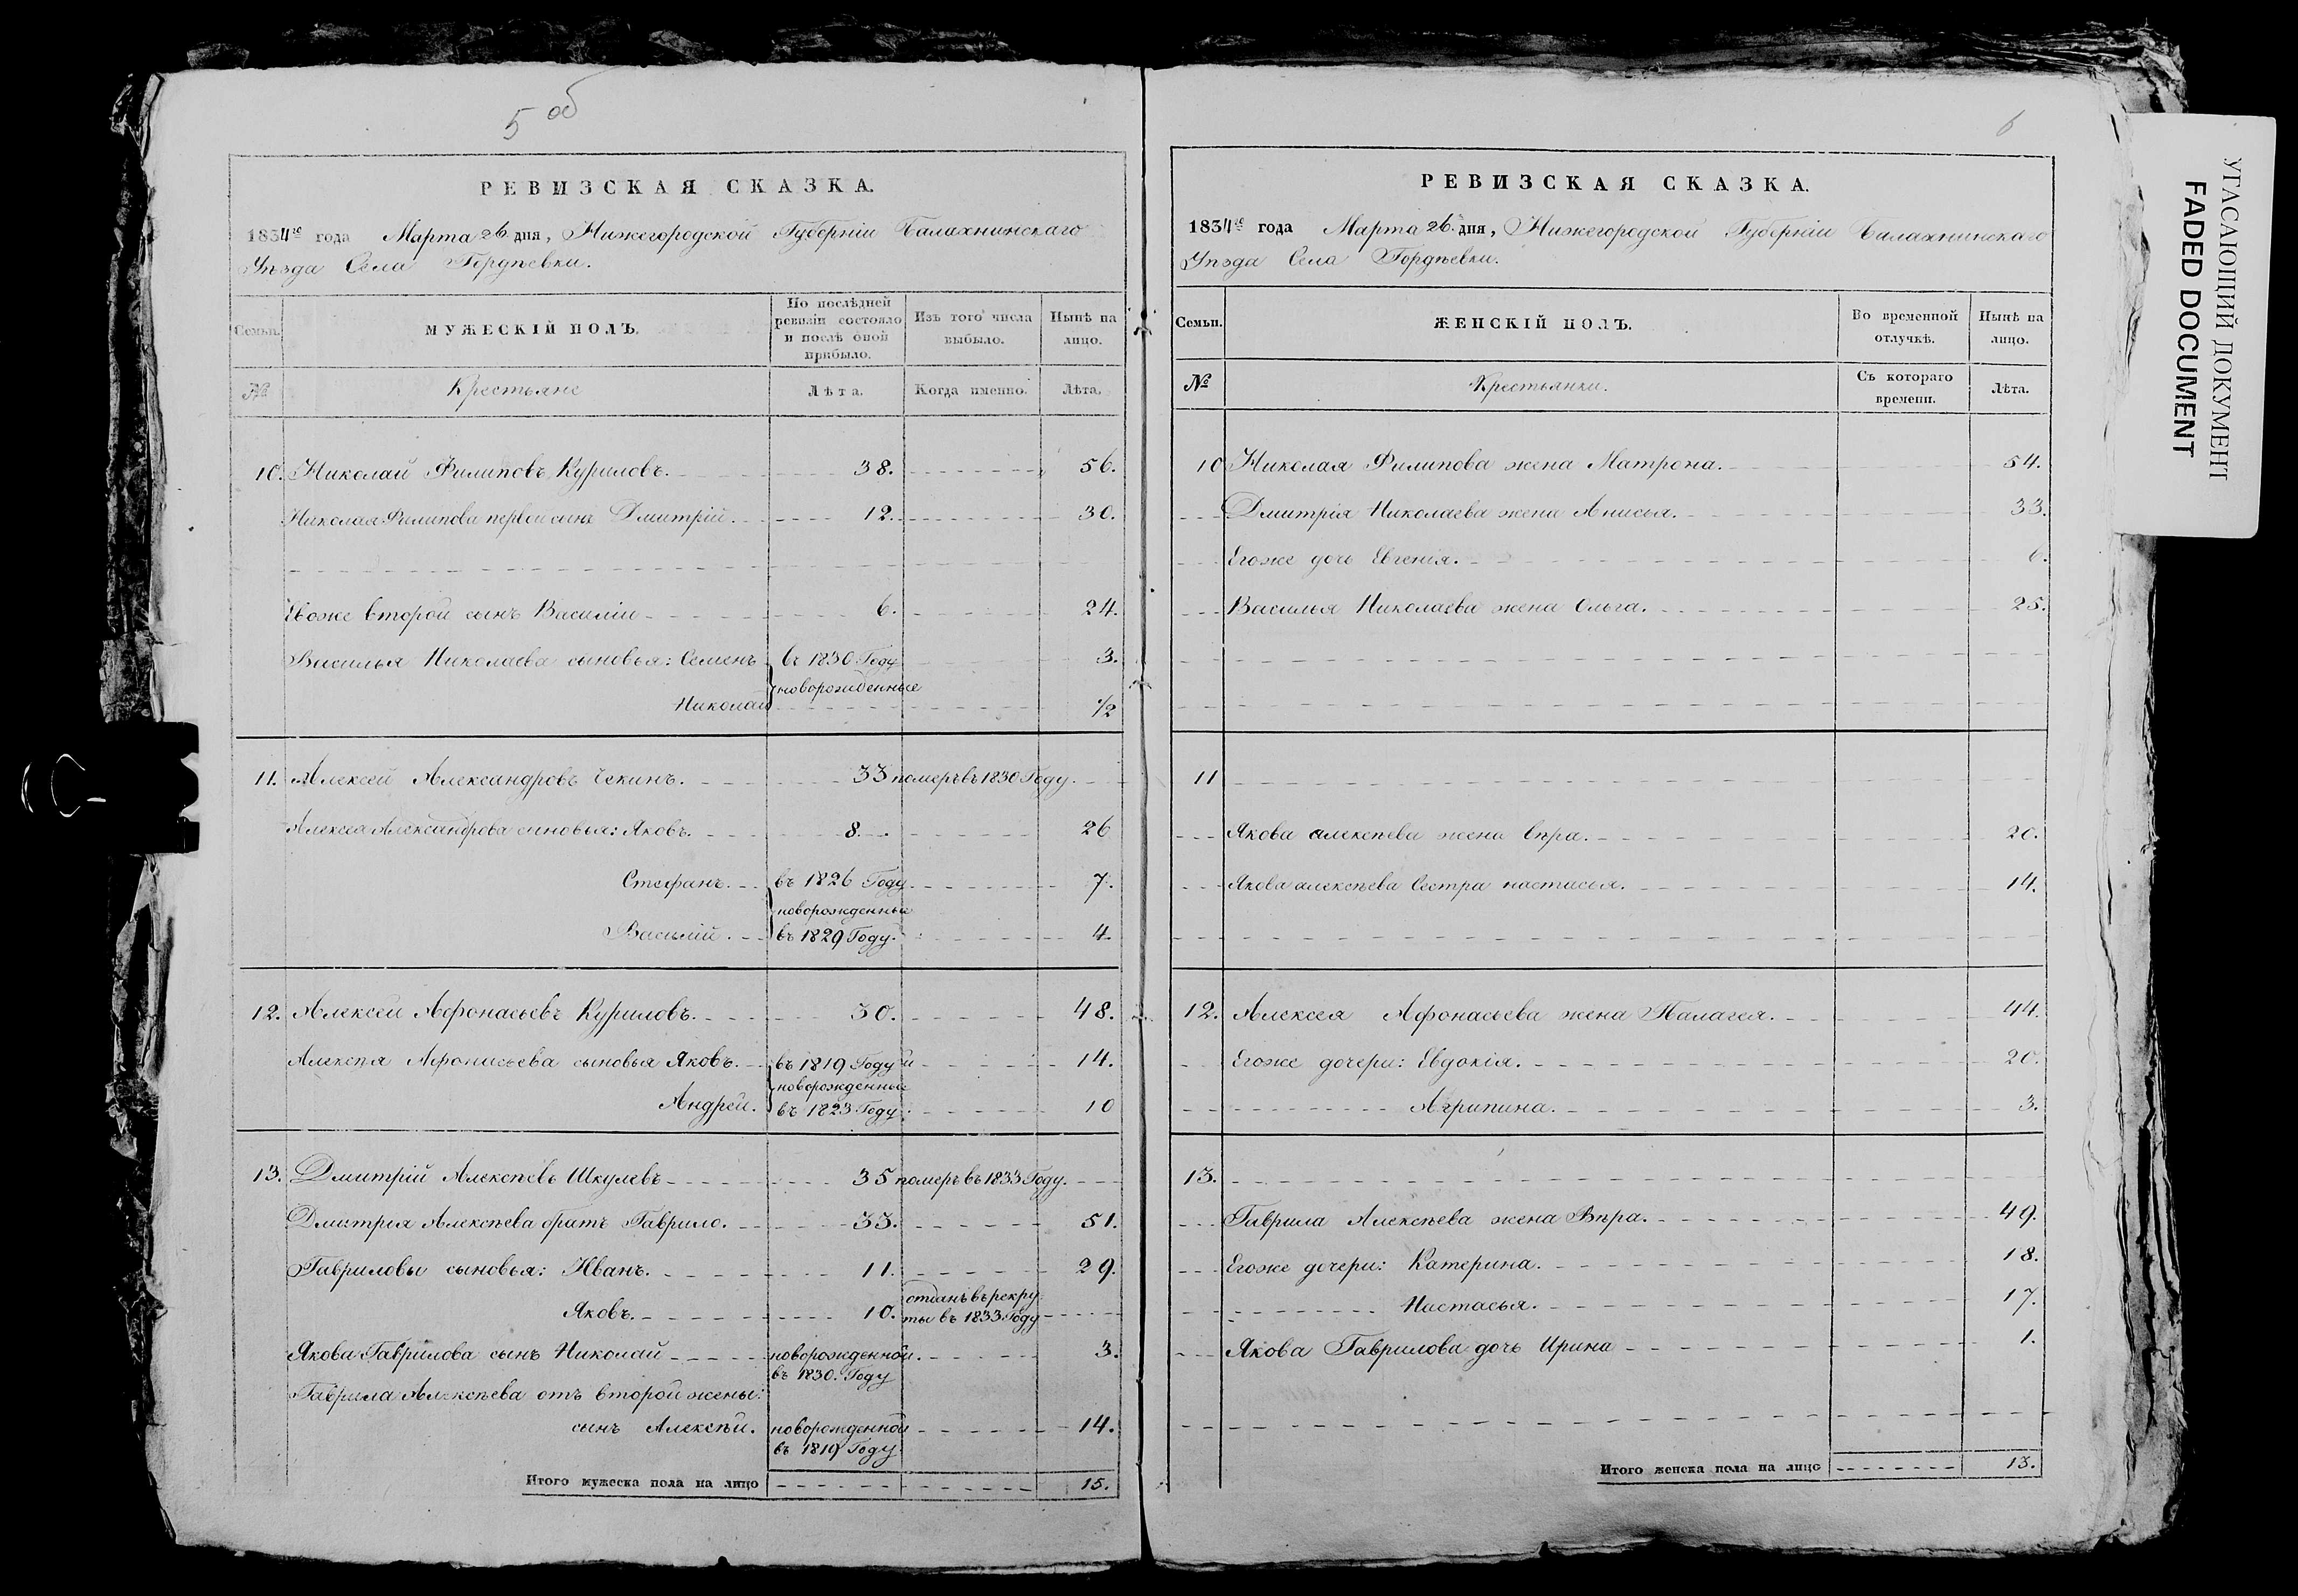 5 об
РЕВИЗСКАЯ СКАЗКА.
1834го года Марта 26 дня, Нижегородской Губерніи Балахнинскаго
Уѣзда Села Гордѣевки.
Семьи. МУЖЕСКІЙ ПОЛЪ. По послѣдней ревизіи состояло и послѣ оной прибыло. Изъ того числа выбыло. Нынѣ на лицо.
№ Крестьяне Лѣта. Когда именно. Лѣта.
10. Николай Филиповъ Куриловъ. 38. 56.
Николая Филипова первой сынъ Дмитрій. 12. 30.
Евоже второй сынъ Василіи 6. 24.
Василья Николаева сыновья: Семенъ въ 1830 Году 3.
новорожденные
Николай 1/2
11. Алексей Александровъ Чекинъ. 33 померъ въ 1830 Году.
Алексея Александрова синовья: Яковъ. 8. 26
Стефанъ. въ 1826 Году 7.
новорожденные
Василій. въ 1829 Году. 4.
12. Алексеи Афонасьевъ Куриловъ. 30. 48.
Алексѣя Афонасьева сыновья Яковъ. въ 1819 Году и 14.
новорожденные
Андреи. въ 1823 Году. 10
13. Дмитрій Алексѣевъ Шкулевъ 35 померъ въ 1833 Году.
Дмитрея Алексѣева братъ Гаврило. 33. 51.
Гавриловы сыновья: Иванъ. 11. 29.
отданъ въ рекру
Яковъ. 10. ты въ 1833 Году
Якова Гаврилова сынъ Николай новорожденной. 3.
въ 1830. Году
Гаврила Алексѣева отъ второй жены:
сынъ Алексѣи. новорожденной 14.
въ 1819 Году
Итого мужеска пола на лицо 15.
6
РЕВИЗСКАЯ СКАЗКА.
1834го года Марта 26. дня, Нижегородской Губерніи Балахнинскаго
Уѣзда Села Гордѣевки.
Семьи. ЖЕНСКІЙ ПОЛЪ. Во временной отлучкѣ. Нынѣ на лицо.
№ Крестьянки. Съ котораго времени. Лѣта.
10 Николая Филипова жена Матрона. 54.
Дмитрія Николаева жена Анисья. 33.
Егоже дочь Евгенія. 6.
Василья Николаева жена Ольга. 25.
11
Якова алексѣева жена вѣра. 20.
Якова алексѣева Сестра настасья. 14.
12. Алексея Афонасьева жена Палагея. 44.
Егоже дочери: Евдокія. 20.
Агрипина. 3.
13.
Гаврила Алексѣева жена Вѣра. 49.
Егоже дочери: Катерина. 18.
Настасья. 17.
Якова Гаврилова дочь Ирина 1.
Итого женска пола на лицо 13.
УГАСАЮЩИЙ ДОКУМЕНТ
FADED DOCUMENT